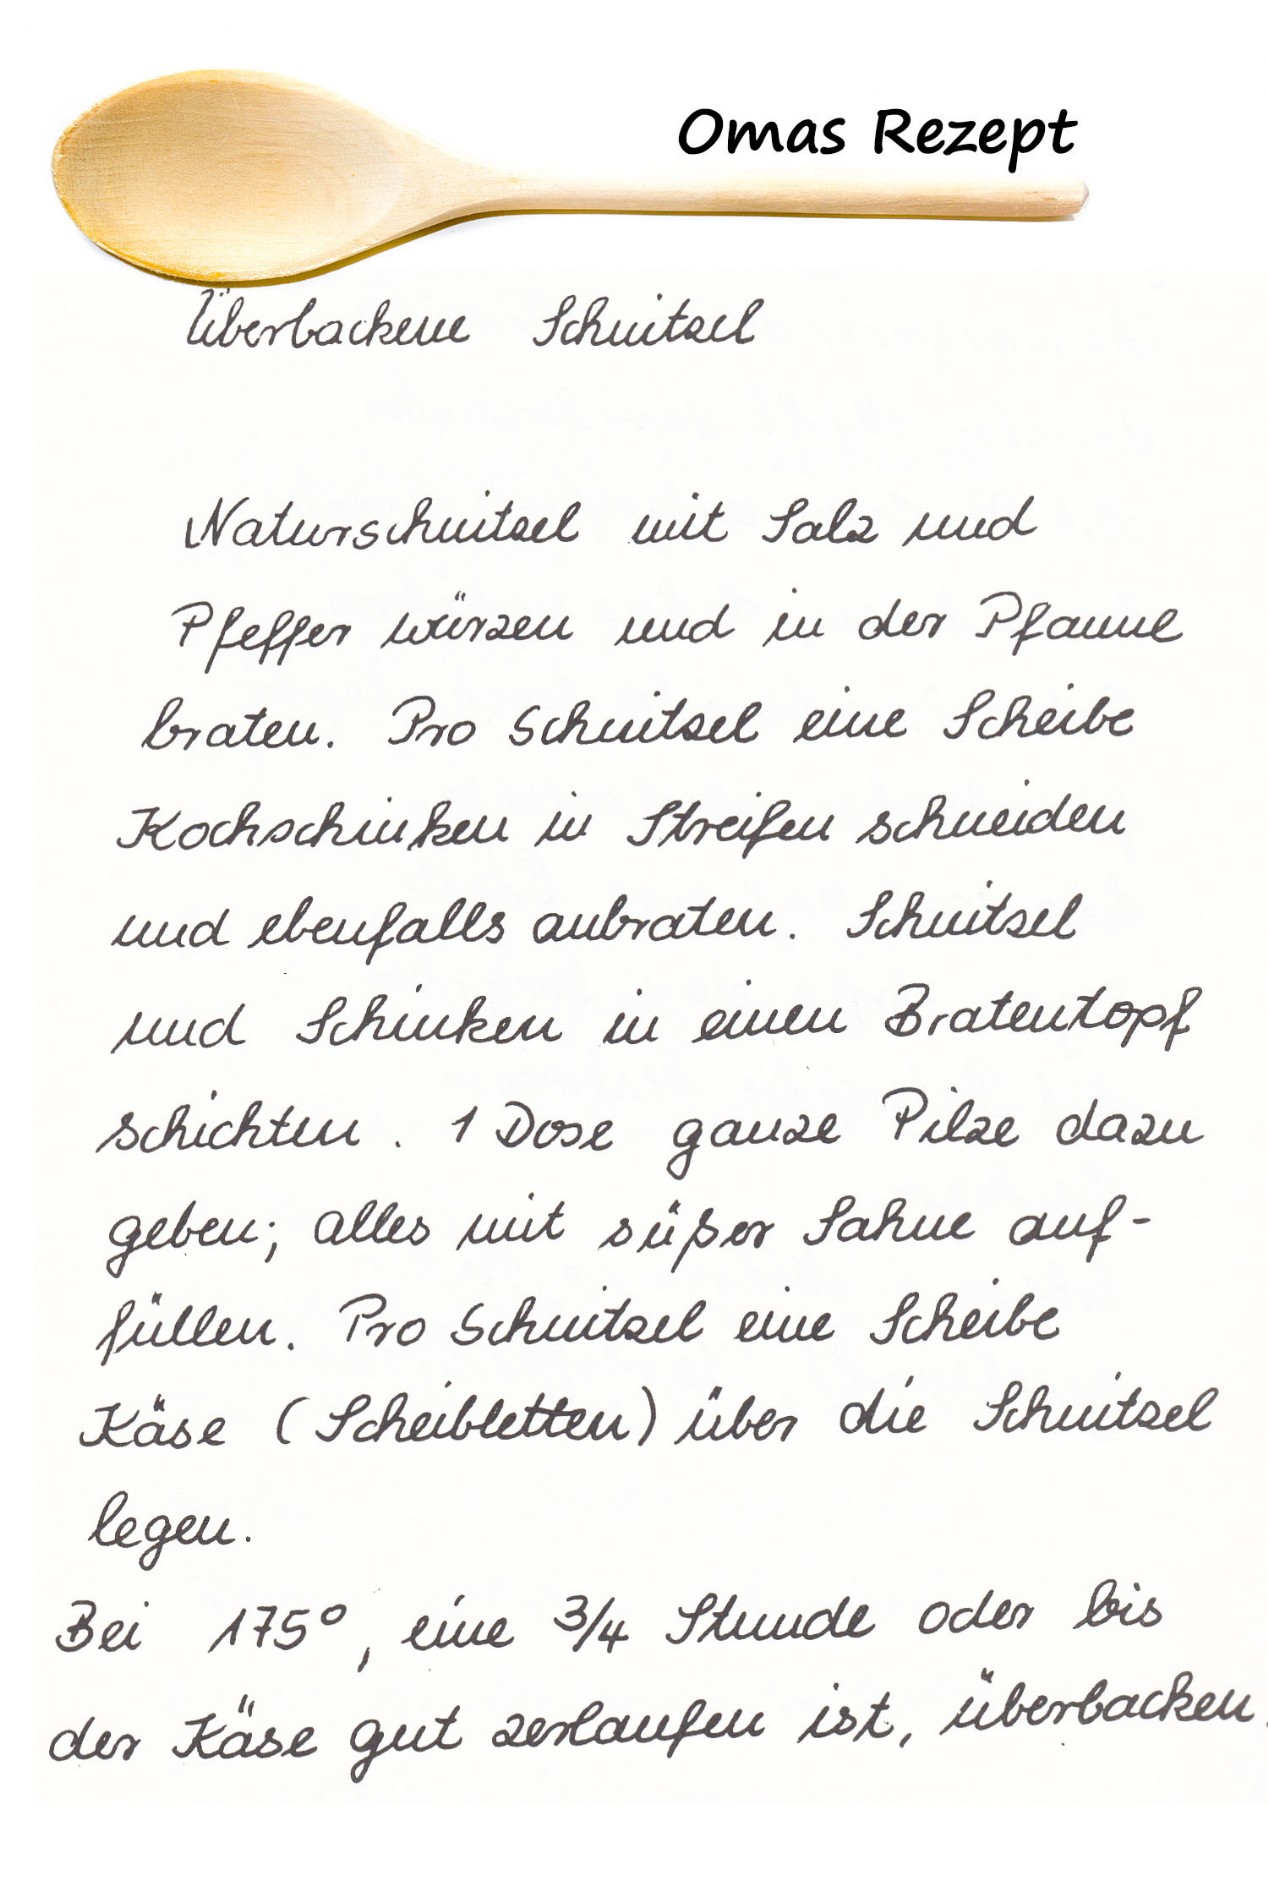 Omas Rezept
Überbackene Schnitzel
Naturschnitzel mit Salz und
Pfeffer würzen und in der Pfanne
braten. Pro Schnitzel eine Scheibe
Kochschinken in Streifen schneiden
und ebenfalls anbraten. Schnitzel
und Schinken in einen Bratentopf
schichten. 1 Dose ganze Pilze dazu
geben; alles mit süßer Sahne auf-
füllen. Pro Schnitzel eine Scheibe
Käse (Scheibletten) über die Schnitzel
legen.
Bei 175°, eine 3/4 Stunde oder bis
der Käse gut zerlaufen ist, überbacken.